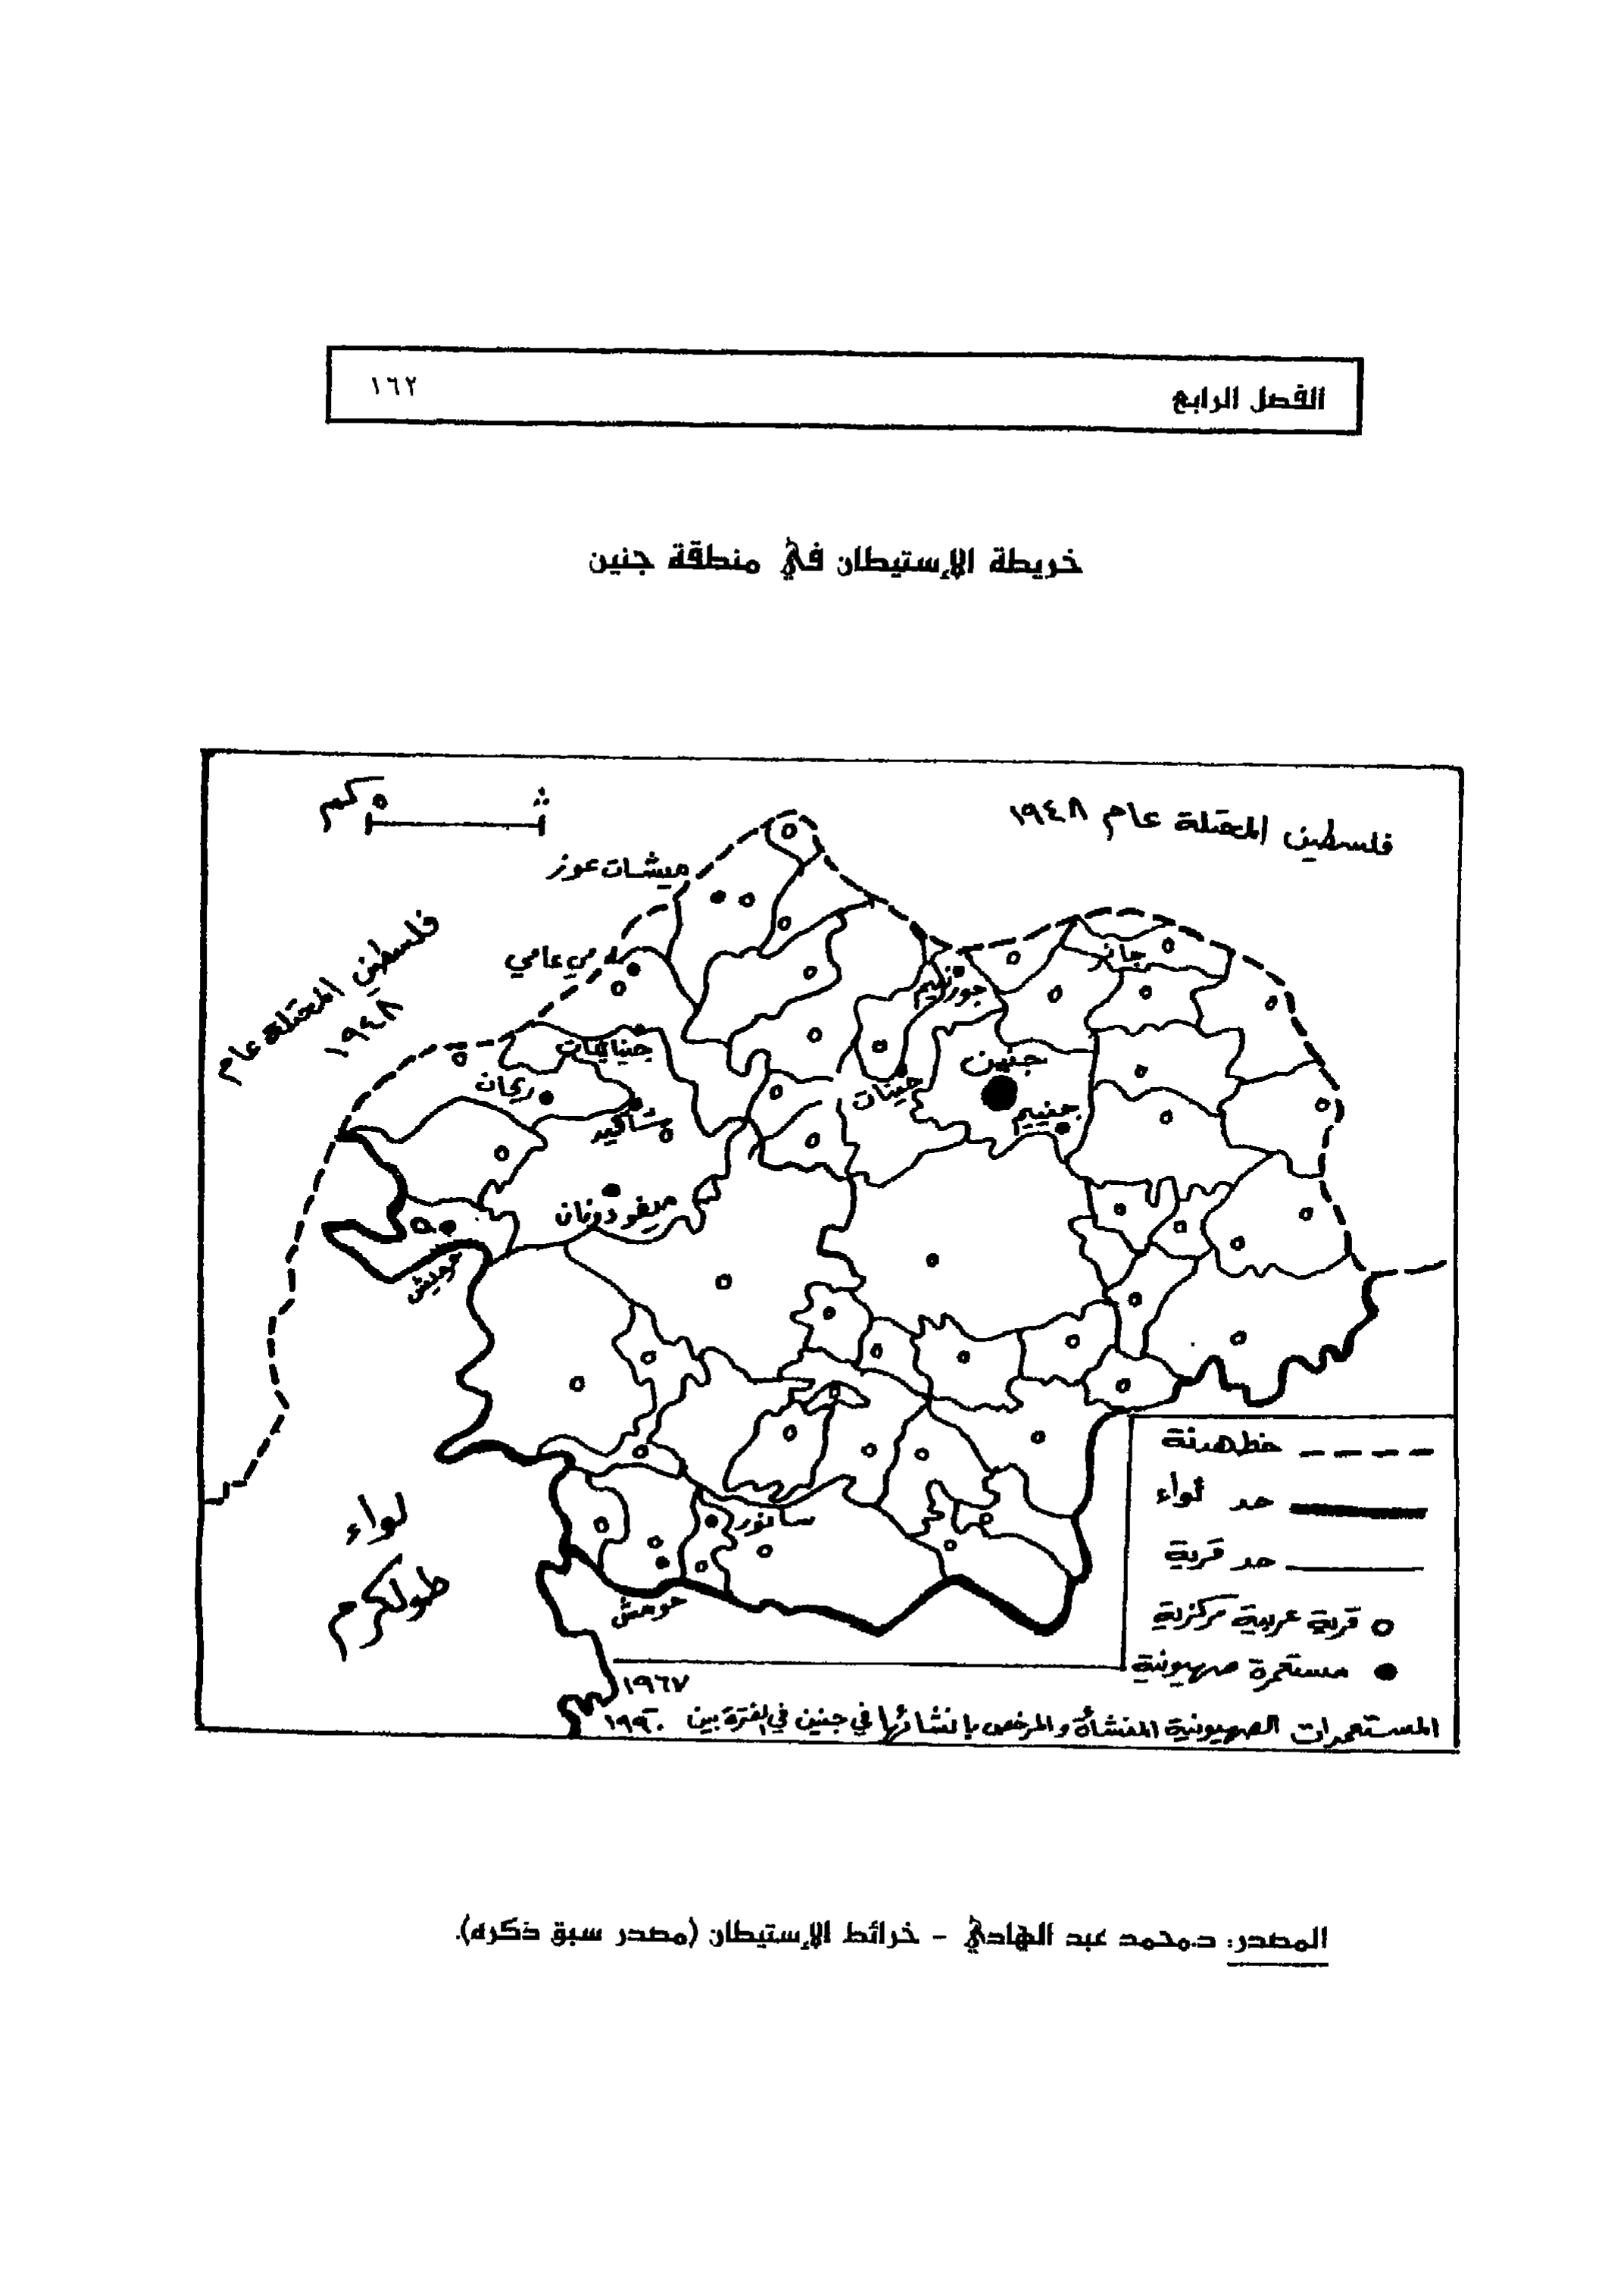 الفصل الرابع
١٦٢
خريطة الإستيطان في منطقة جنين
٥ كم
فلسطين المحتلة عام ١٩٤٨
ميشات عوز
مي عامي
فلسطين المحتلة عام
١٩٤٨
جانر
جورنليم
حنانيت
ريحان
شاكيد
جنين
جنيم
جينات
ميفو دوتان
حرميش
سانور
حومش
لواء
طولكرم
خط هدنة
حد لواء
حد قرية
قرية عربية مركزية
مستعمرة صهيونية
١٩٦٧
المستعمرات الصهيونية المنشأة والمرخص بإنشائها في جنين في الفترة بين ١٩٩٠
المصدر: د.محمد عبد الهادي - خرائط الإستيطان (مصدر سبق ذكره).